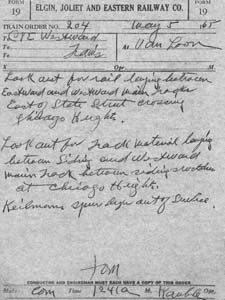 FORM 19
ELGIN, JOLIET AND EASTERN RAILWAY CO.
FORM 19
TRAIN ORDER NO. 204 May 5 1965
To C&E Westward At Van Loon
To Trains
To
X Opr. M.
Look out for rail laying between
Eastward and Westward main tracks
East of State Street crossing
Chicago Heights.
Look out for track material laying
between Siding and Westward
main track between siding switches
at Chicago Heights.
spur out of Service.
CONDUCTOR AND ENGINEMAN MUST EACH HAVE A COPY OF THIS ORDER
Made Com Time 1241 a M. Opr.